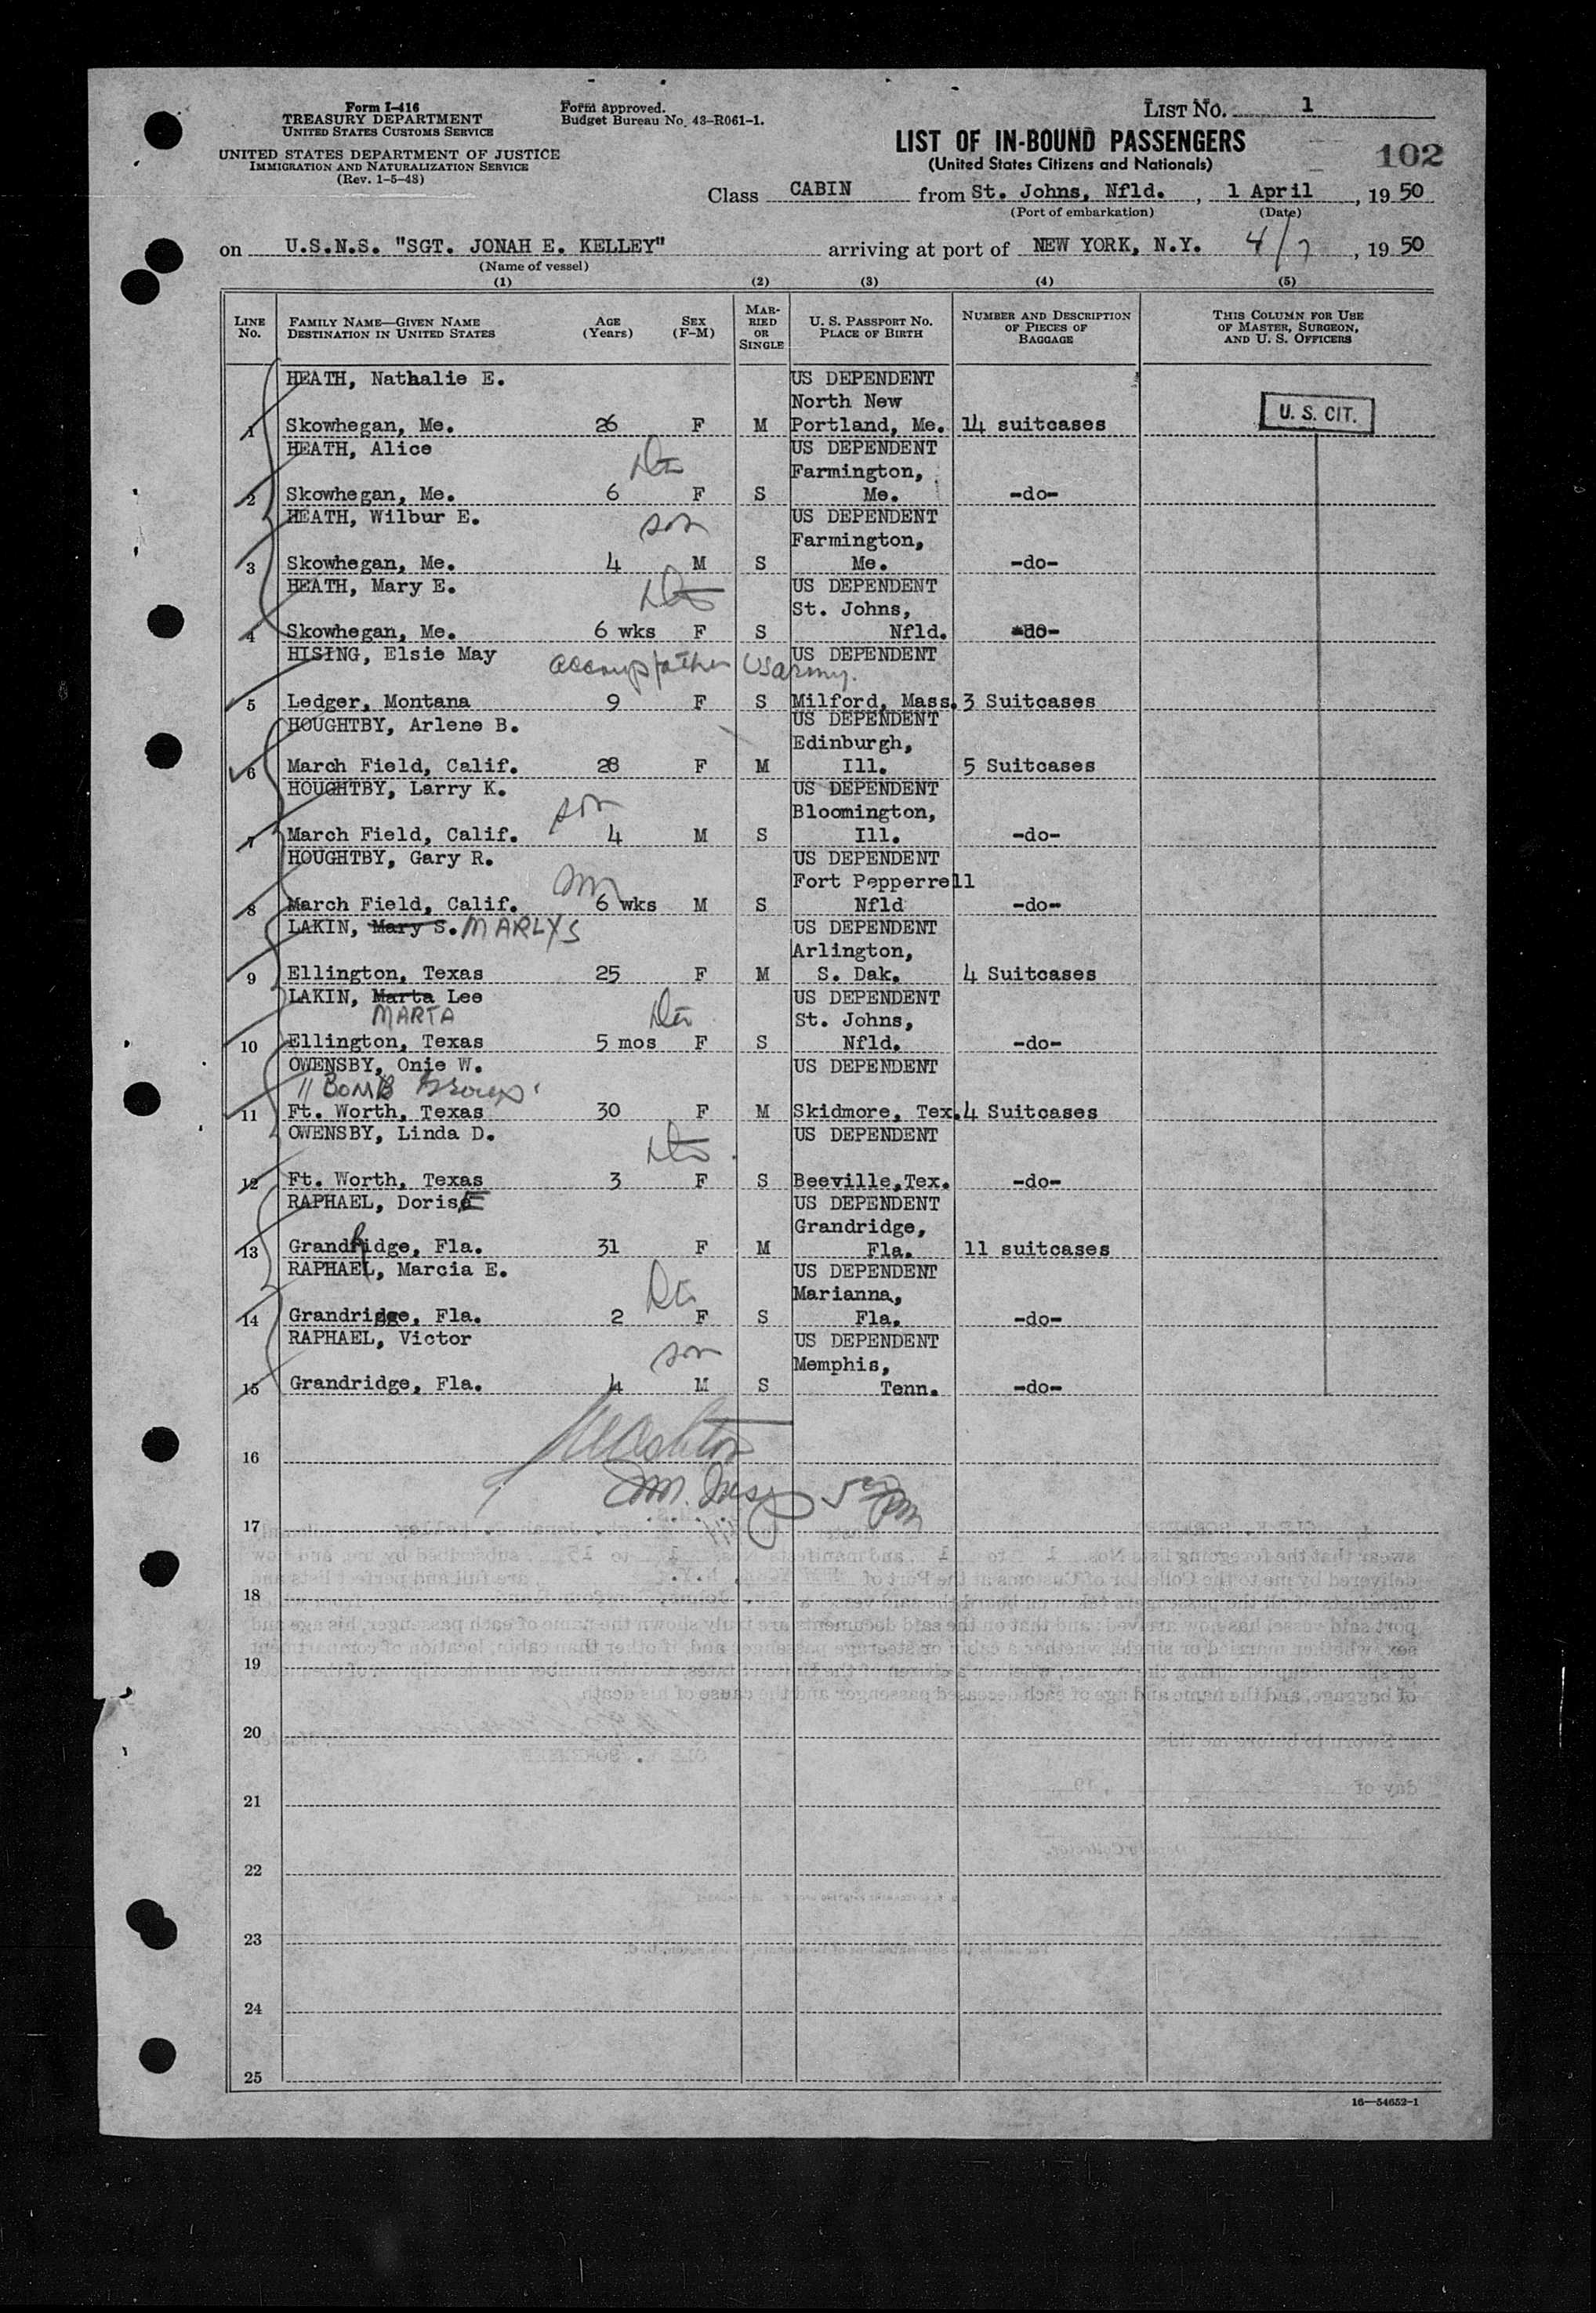 Form I-416
TREASURY DEPARTMENT
UNITED STATES CUSTOMS SERVICE
UNITED STATES DEPARTMENT OF JUSTICE
IMMIGRATION AND NATURALIZATION SERVICE
(Rev. 1-5-48)
Form approved.
Budget Bureau No. 43-R061-1.
LIST NO. 1
LIST OF IN-BOUND PASSENGERS
(United States Citizens and Nationals)
102
Class CABIN from St. Johns, Nfld. , 1 April , 19 50
(Port of embarkation) (Date)
on U.S.N.S. "SGT. JONAH E. KELLEY" arriving at port of NEW YORK, N.Y. 4/7 , 19 50
(Name of vessel)
(1) (2) (3) (4) (5)
LINE No. FAMILY NAME—GIVEN NAME DESTINATION IN UNITED STATES AGE (Years) SEX (F-M) MARRIED OR SINGLE U. S. PASSPORT NO. PLACE OF BIRTH NUMBER AND DESCRIPTION OF PIECES OF BAGGAGE THIS COLUMN FOR USE OF MASTER, SURGEON, AND U. S. OFFICERS
HEATH, Nathalie E. US DEPENDENT
North New
1 Skowhegan, Me. 26 F M Portland, Me. 14 suitcases U. S. CIT.
HEATH, Alice US DEPENDENT
Farmington,
2 Skowhegan, Me. 6 F S Me. -do-
HEATH, Wilbur E. son US DEPENDENT
Farmington,
3 Skowhegan, Me. 4 M S Me. -do-
HEATH, Mary E. US DEPENDENT
St. Johns,
4 Skowhegan, Me. 6 wks F S Nfld. -do-
HISING, Elsie May accomp father US Army. US DEPENDENT
5 Ledger, Montana 9 F S Milford, Mass. 3 Suitcases
HOUGHTBY, Arlene B. US DEPENDENT
Edinburgh,
6 March Field, Calif. 28 F M Ill. 5 Suitcases
HOUGHTBY, Larry K. US DEPENDENT
son Bloomington,
7 March Field, Calif. 4 M S Ill. -do-
HOUGHTBY, Gary R. US DEPENDENT
son Fort Pepperrell
8 March Field, Calif. 6 wks M S Nfld -do-
LAKIN, Mary S. MARLYS US DEPENDENT
Arlington,
9 Ellington, Texas 25 F M S. Dak. 4 Suitcases
LAKIN, Marta Lee US DEPENDENT
MARTA St. Johns,
10 Ellington, Texas 5 mos F S Nfld. -do-
OWENSBY, Onie W. US DEPENDENT
11 BOMB Group
11 Ft. Worth, Texas 30 F M Skidmore, Tex. 4 Suitcases
OWENSBY, Linda D. US DEPENDENT
12 Ft. Worth, Texas 3 F S Beeville,Tex. -do-
RAPHAEL, Doris E US DEPENDENT
Grandridge,
13 Grandridge, Fla. 31 F M Fla. 11 suitcases
RAPHAEL, Marcia E. US DEPENDENT
Marianna,
14 Grandridge, Fla. 2 F S Fla. -do-
RAPHAEL, Victor US DEPENDENT
son Memphis,
15 Grandridge, Fla. 4 M S Tenn. -do-
16
17
18
19
20
21
22
23
24
25
16—54652-1